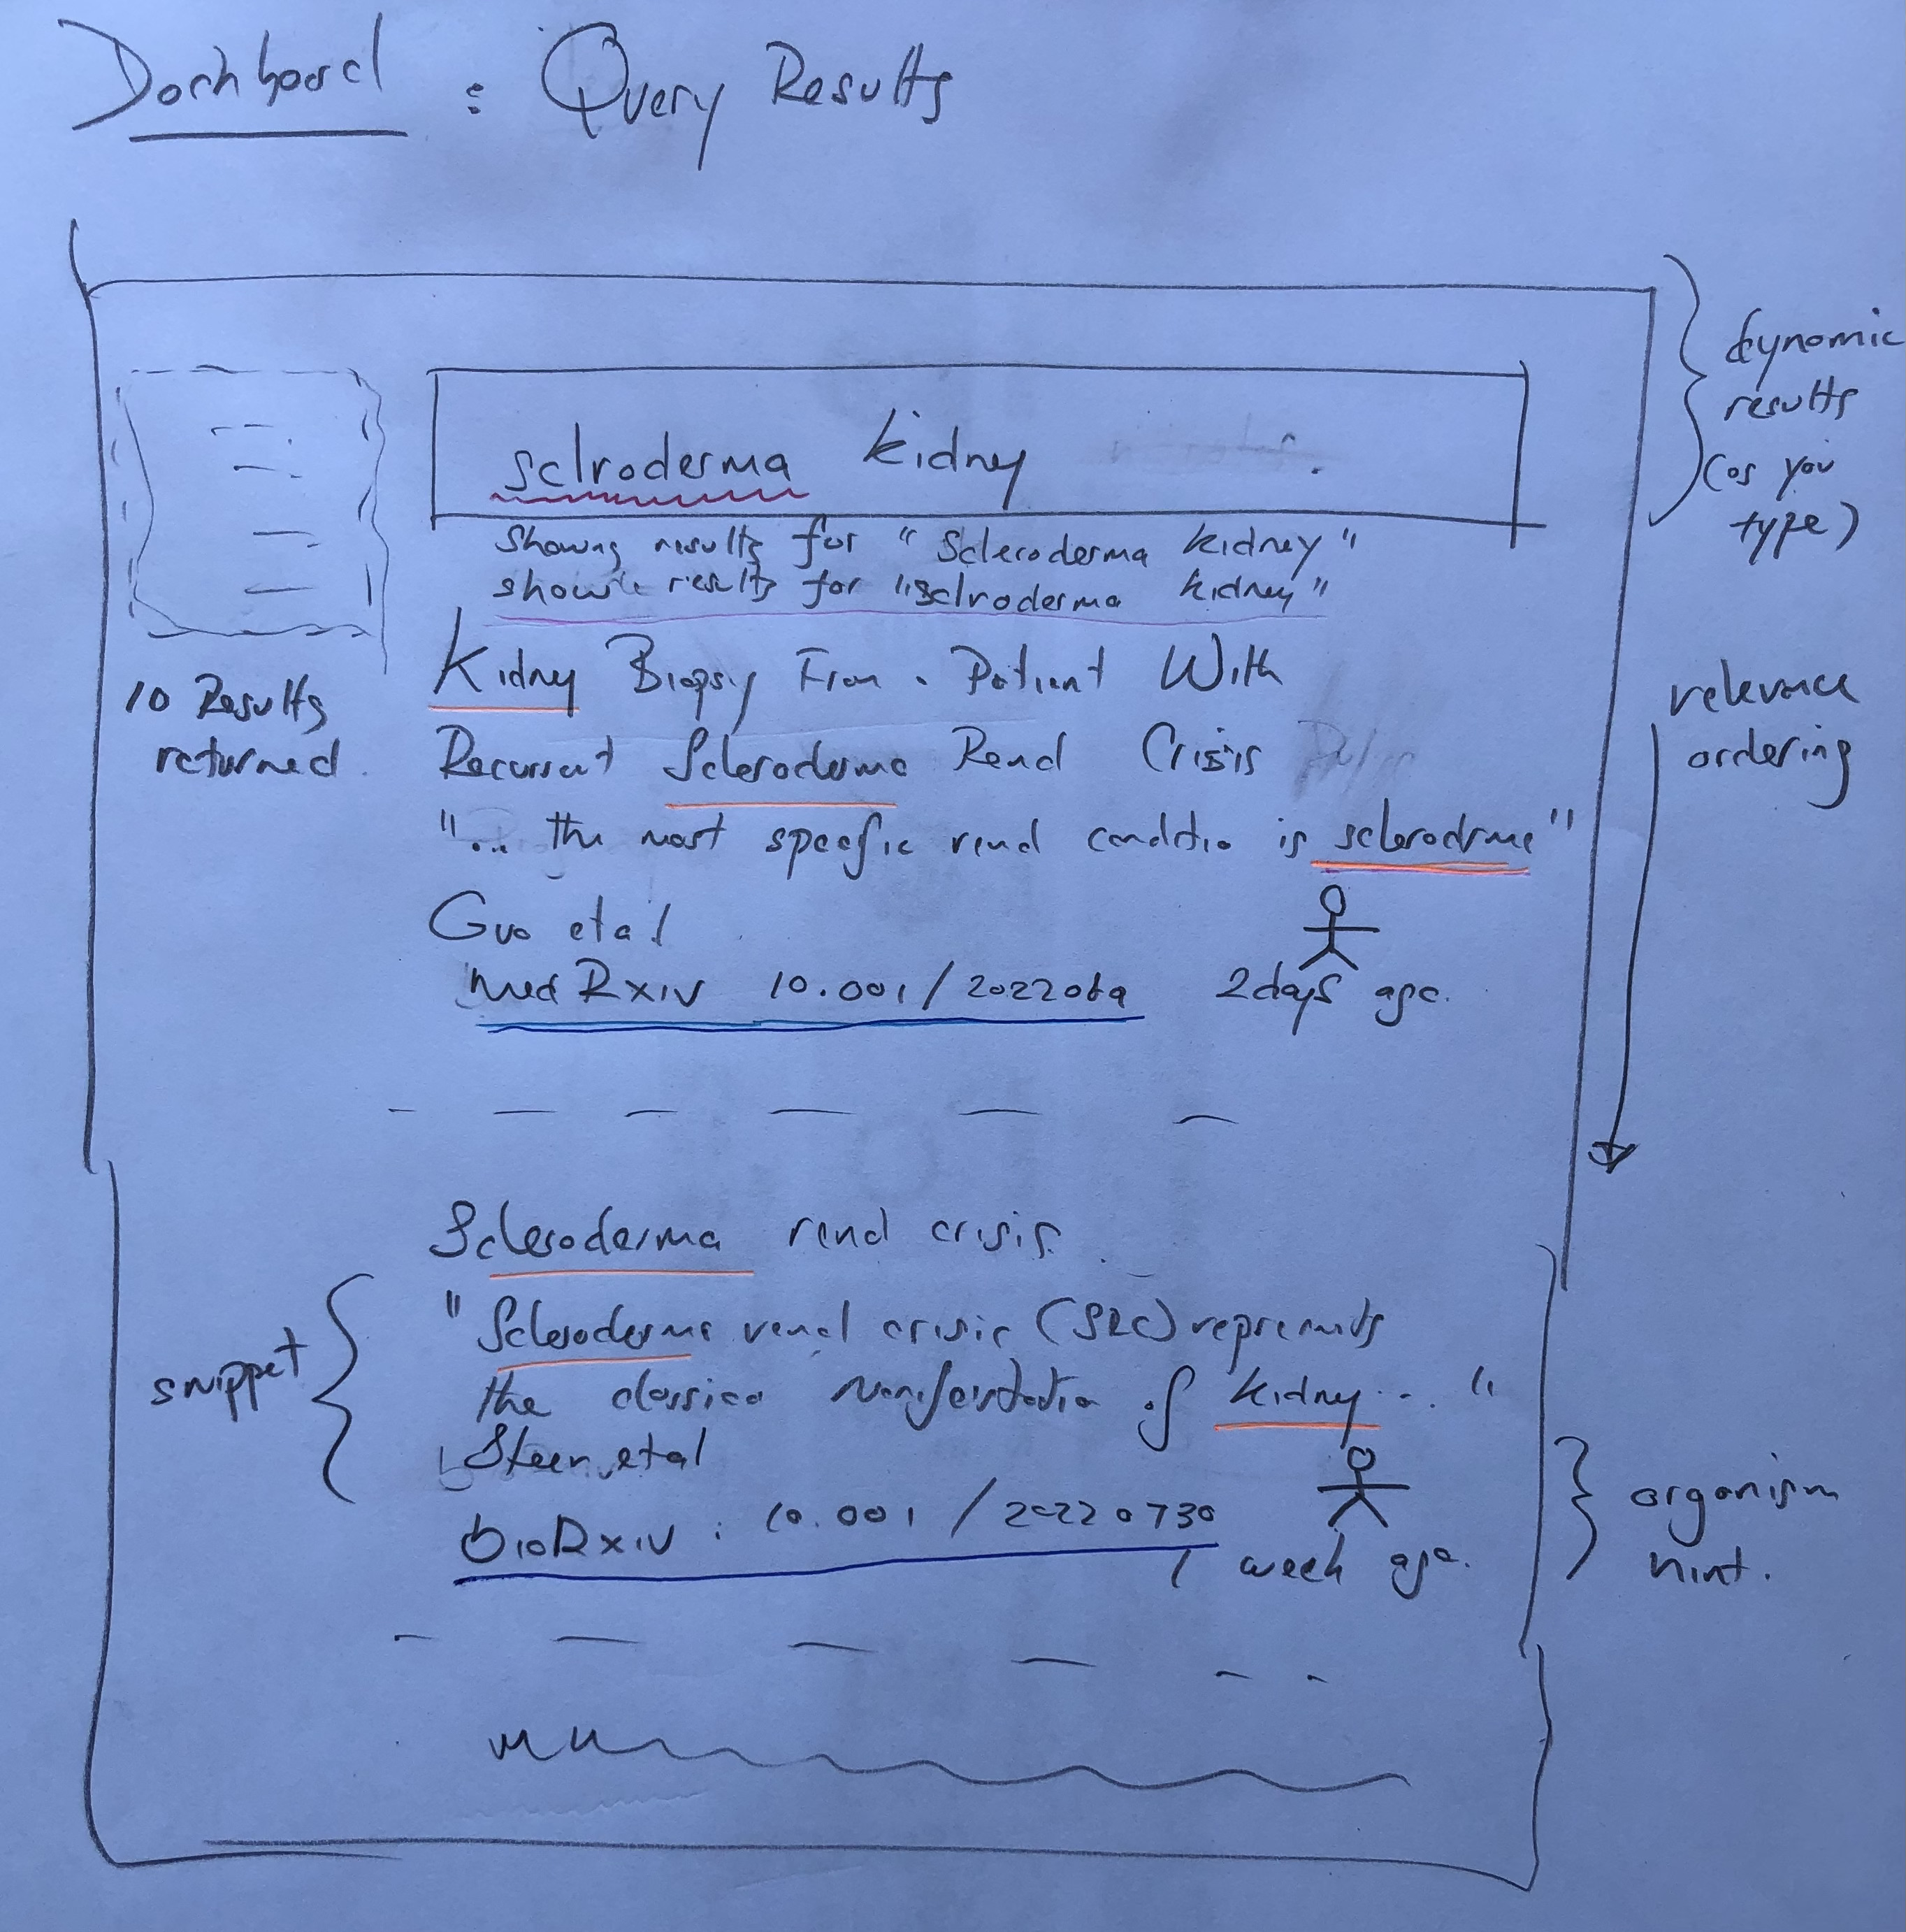 Dashboard : Query Results
dynamic
results
(as you
type)
sclroderma kidney
Showing results for "Scleroderma kidney"
show results for "sclroderma kidney"
10 Results
returned
Kidney Biopsy From a Patient With
Recurrent Scleroderma Renal Crisis
"... the most specific renal condition is scleroderma"
relevance
ordering
Guo et al
MedRxiv 10.001/2022
2 days ago.
Scleroderma renal crisis.
snippet
"Scleroderma renal crisis (SRC) represents
the classical manifestation of kidney... "
Steen et al
BioRxiv : 10.001 / 20220730
1 week ago.
organism
hint.